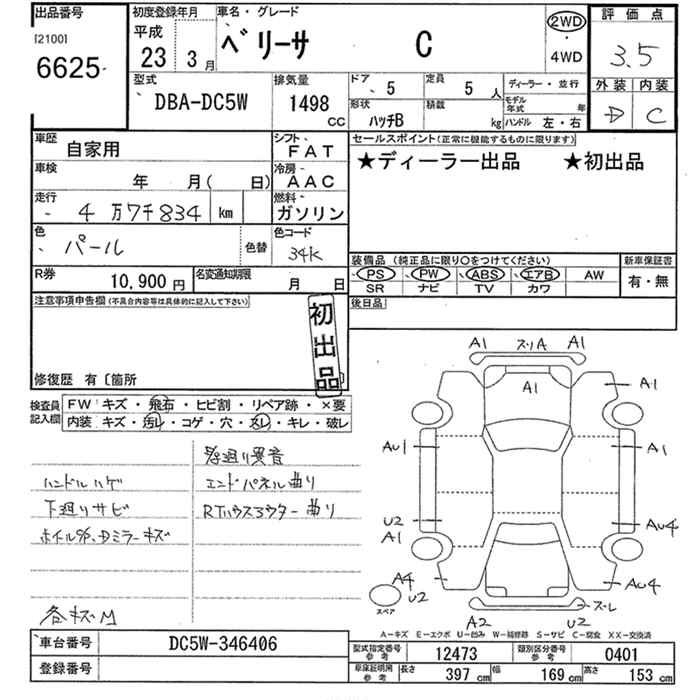 出品番号
[2100]
6625
初度登録年月
平成
23 3月
車名・グレード
ベリーサ C
2WD
・
4WD
評価点
3.5
外装 内装
D C
型式
DBA-DC5W
排気量
1498
CC
ドア 5
定員 5 人
形状 ハッチB
積載 kg
ディーラー・並行
モデル年式 年
ハンドル 左・右
車歴
自家用
シフト
FAT
車検
年 月( 日)
冷房
AAC
走行
4万7千834 km
燃料
ガソリン
色
パール
色替
色コード
34K
R券
10,900円
名変通知期限
月 日
セールスポイント(正常に機能するものに限ります)
★ディーラー出品 ★初出品
装備品(純正品に限り○をつけてください)
PS PW ABS エアB AW
SR ナビ TV カワ
新車保証書
有・無
後日品
注意事項申告欄(不具合内容等は具体的に記入して下さい)
初出品
修復歴 有〔箇所
検査員記入欄
FW キズ・飛石・ヒビ割・リペア跡・×要
内装 キズ・汚レ・コゲ・穴・スレ・キレ・破レ
異音
ハンドルハゲ
エンドパネル曲り
下廻りサビ
ホイルキズ、Dミラーキズ
各キズM
A1 スリA A1
A1
A1
AU1
A1
U2
A1
AU4
A4
U2
スペア
AU4
スレ
A2 U2
A-キズ E-エクボ U-凹み W-補修跡 S-サビ C-腐食 XX-交換済
車台番号
DC5W-346406
登録番号
型式指定番号
参考
12473
類別区分番号
参考
0401
車庫証明用
参考
長さ 397 cm 幅 169 cm 高さ 153 cm